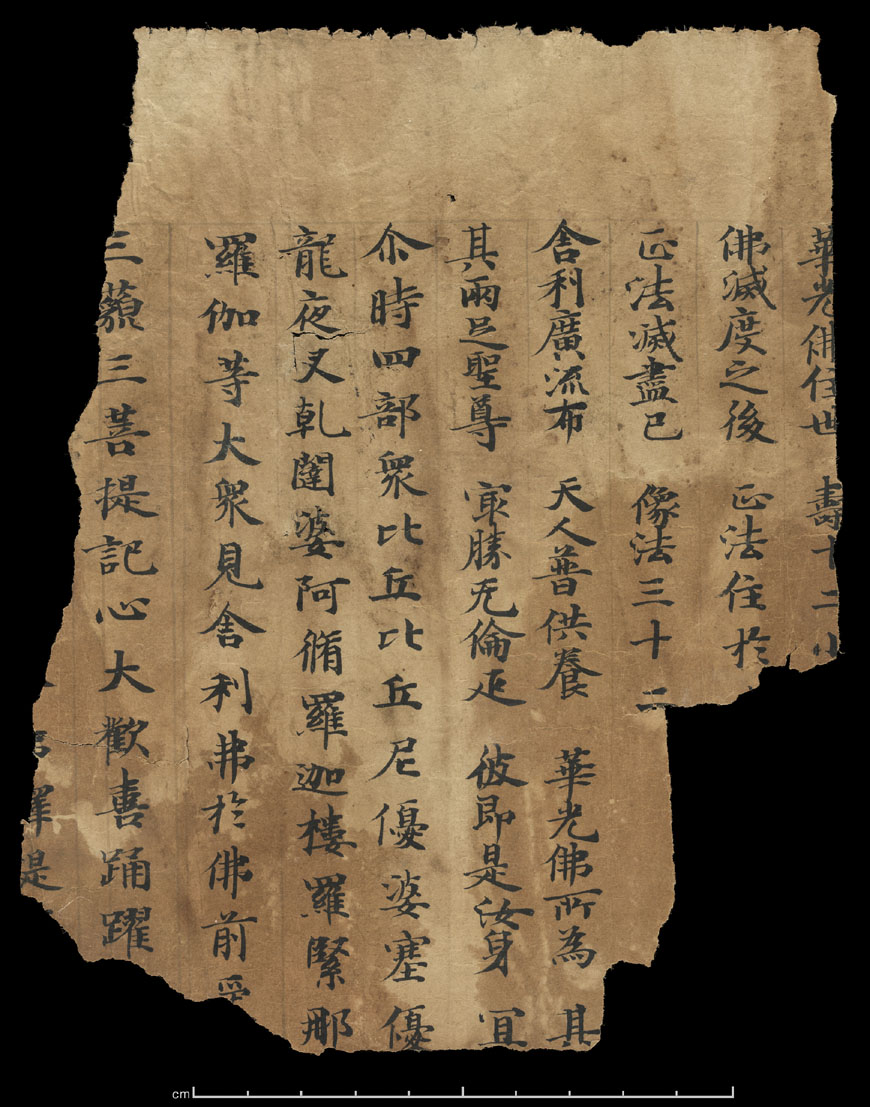 華光佛住世 壽十二小
佛滅度之後 正法住於
正法滅盡已 像法三十二
舍利廣流布 天人普供養 華光佛所為 其
其兩足聖尊 冣勝无倫疋 彼即是汝身 冝
尒時四部衆比丘比丘尼優婆塞優
龍夜叉乹闥婆阿脩羅迦樓羅緊那
羅伽等大衆見舍利弗於佛前受
三藐三菩提記心大歡喜踊躍
釋提